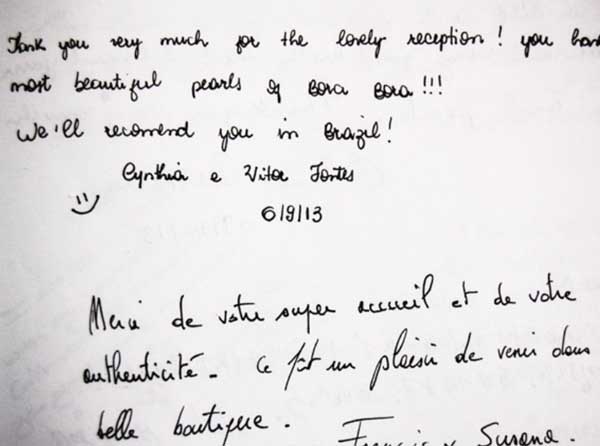 Tank you very much for the lovely reception! you have
most beautiful pearls of Bora Bora!!!
We'll recomend you in Brazil!
Cynthia e Vitor Fortes
6/9/13
Merci de votre super accueil et de votre
authenticité. Ce fût un plaisir de venir dans
belle boutique.
Susana.